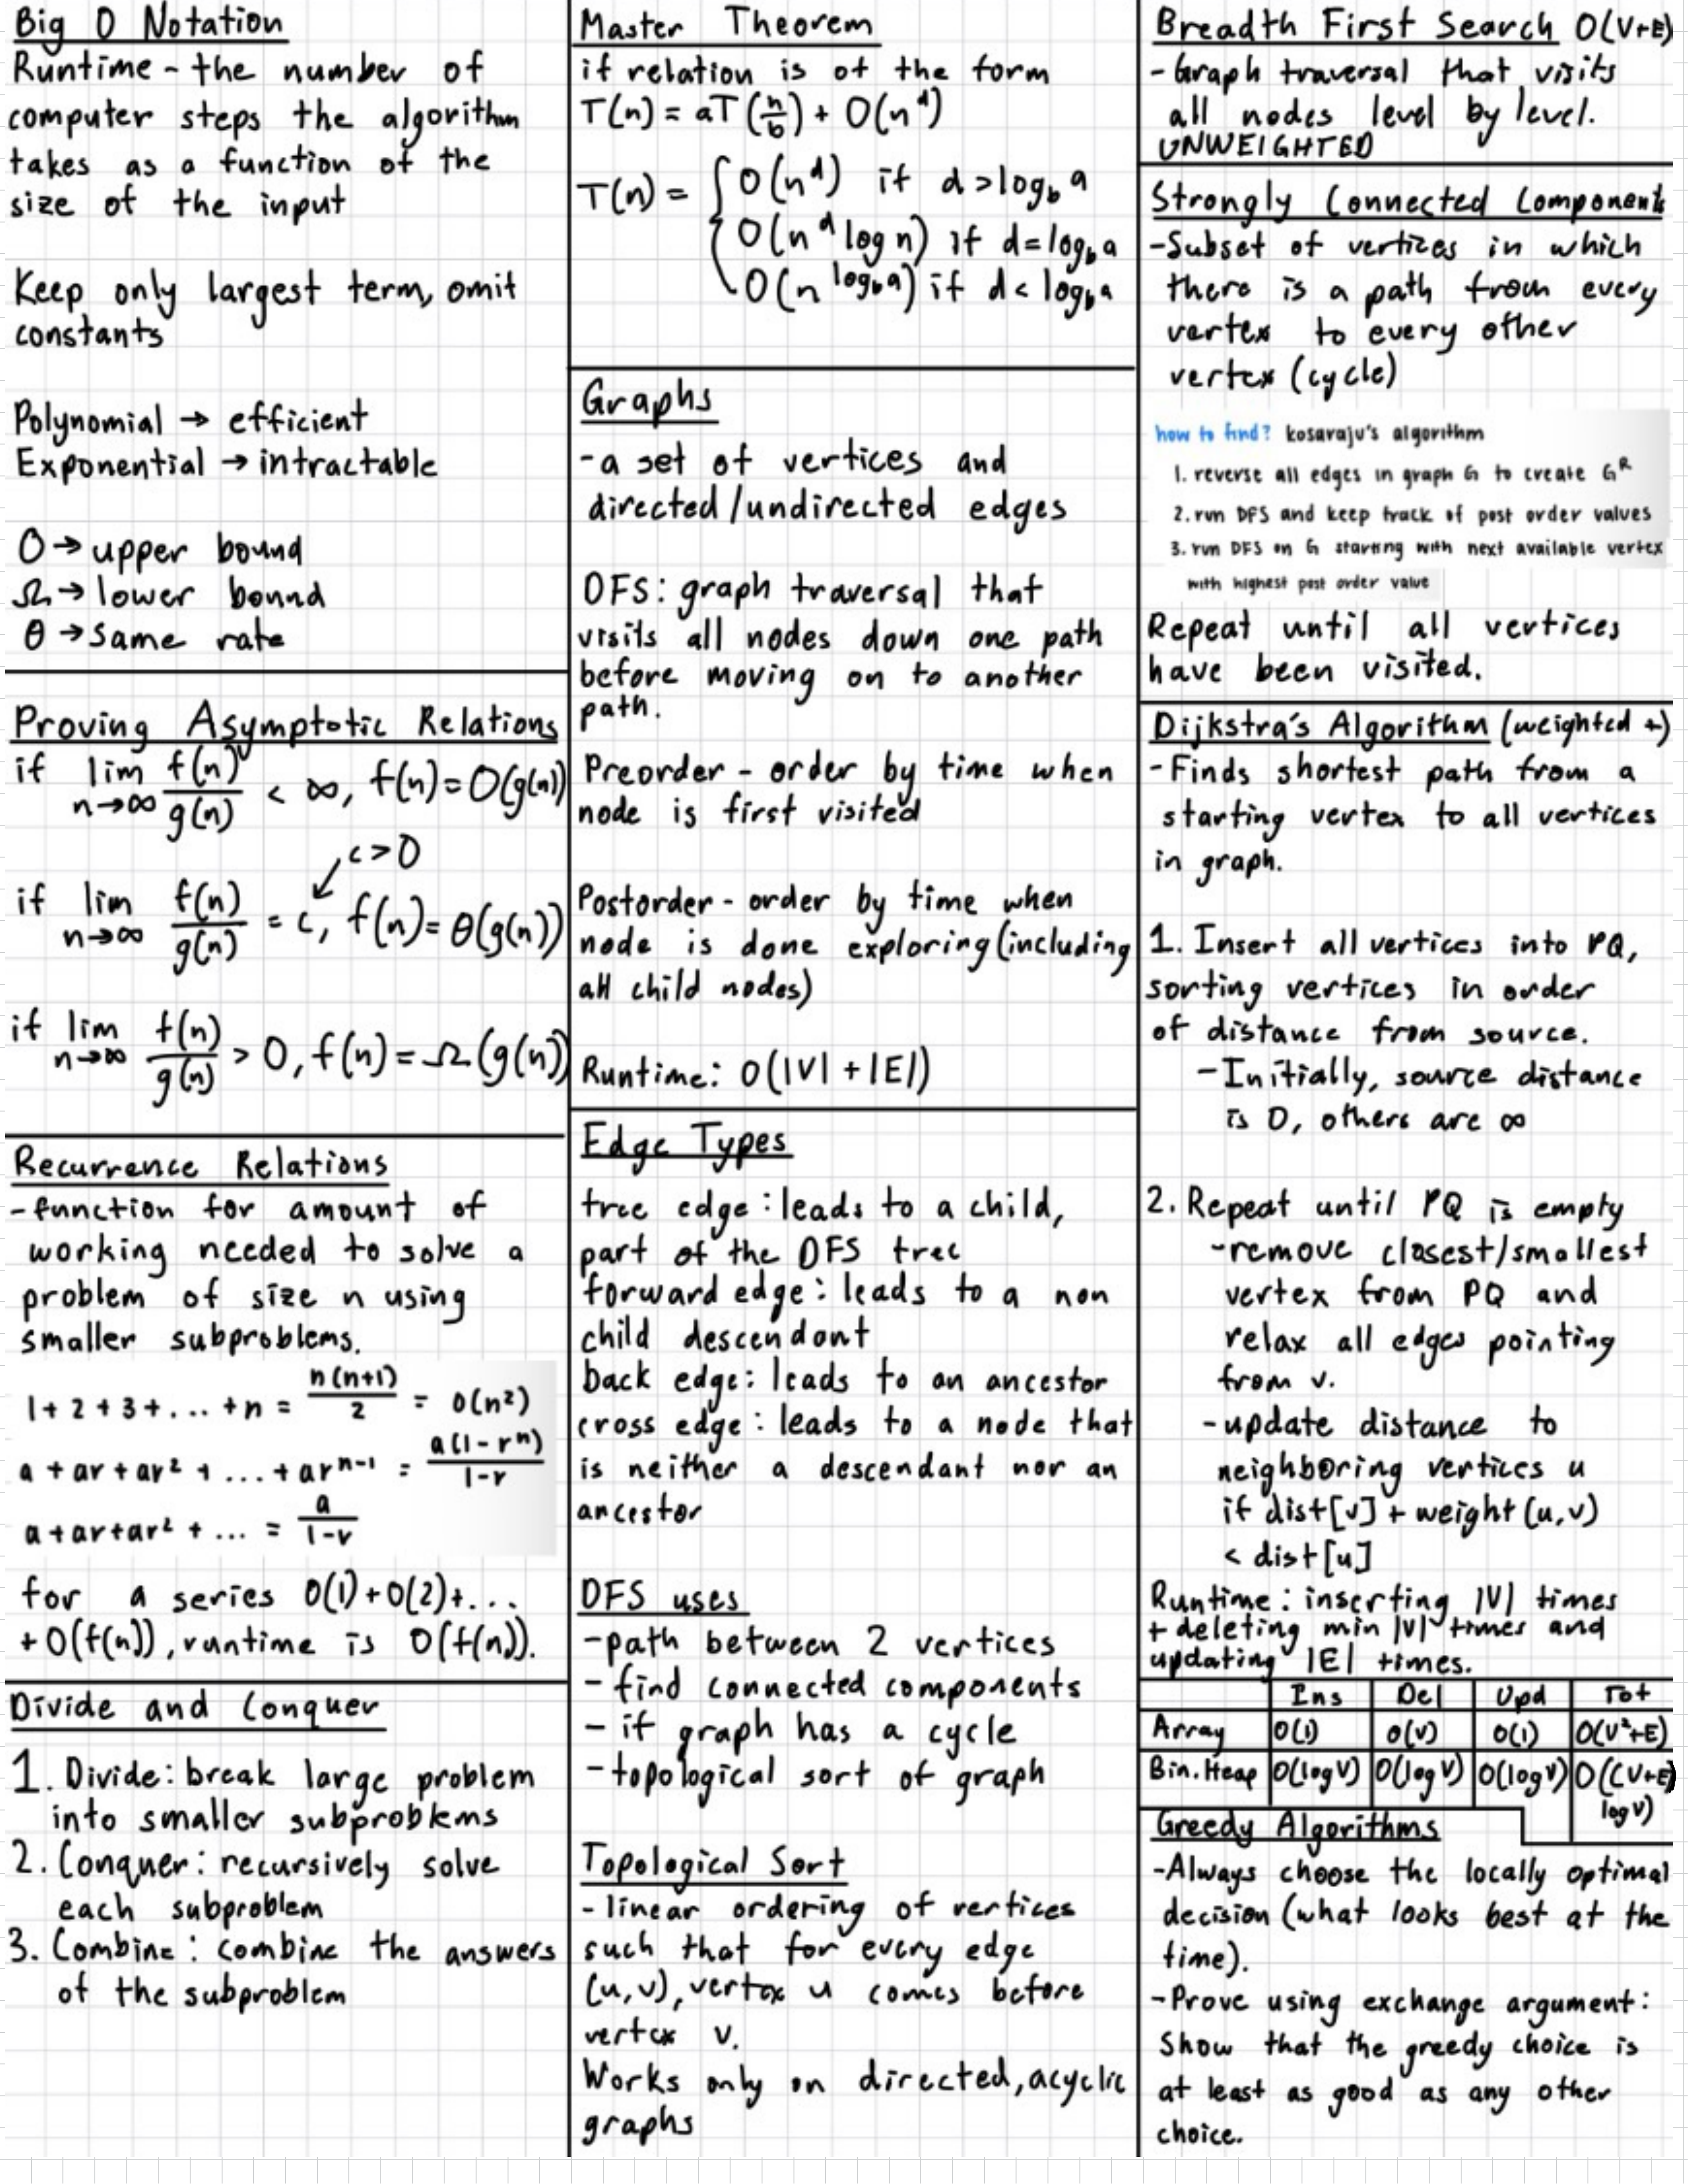 Big O Notation
Runtime - the number of
computer steps the algorithm
takes as a function of the
size of the input
Keep only largest term, omit
constants
Polynomial → efficient
Exponential → intractable
O → upper bound
Ω → lower bound
θ → same rate
Proving Asymptotic Relations
if lim n→∞ f(n)/g(n) < ∞, f(n) = O(g(n))
c > 0
if lim n→∞ f(n)/g(n) = c, f(n) = θ(g(n))
if lim n→∞ f(n)/g(n) > 0, f(n) = Ω(g(n))
Recurrence Relations
- function for amount of
working needed to solve a
problem of size n using
smaller subproblems.
1 + 2 + 3 + ... + n = n(n+1)/2 = O(n²)
a + ar + ar² + ... + arⁿ⁻¹ = a(1-rⁿ)/1-r
a + ar + ar² + ... = a/1-r
for a series O(1) + O(2) + ...
+ O(f(n)), runtime is O(f(n)).
Divide and Conquer
1. Divide: break large problem
into smaller subproblems
2. Conquer: recursively solve
each subproblem
3. Combine: combine the answers
of the subproblem
Master Theorem
if relation is of the form
T(n) = aT(n/b) + O(n^d)
T(n) = { O(n^d) if d > log_b a
O(n^d log n) if d = log_b a
O(n^(log_b a)) if d < log_b a
Graphs
- a set of vertices and
directed/undirected edges
DFS: graph traversal that
visits all nodes down one path
before moving on to another
path.
Preorder - order by time when
node is first visited
Postorder - order by time when
node is done exploring (including
all child nodes)
Runtime: O(|V| + |E|)
Edge Types
tree edge: leads to a child,
part of the DFS tree
forward edge: leads to a non
child descendant
back edge: leads to an ancestor
cross edge: leads to a node that
is neither a descendant nor an
ancestor
DFS uses
- path between 2 vertices
- find connected components
- if graph has a cycle
- topological sort of graph
Topological Sort
- linear ordering of vertices
such that for every edge
(u,v), vertex u comes before
vertex v.
Works only on directed, acyclic
graphs
Breadth First Search O(V+E)
- Graph traversal that visits
all nodes level by level.
UNWEIGHTED
Strongly Connected Components
- Subset of vertices in which
there is a path from every
vertex to every other
vertex (cycle)
how to find? kosaraju's algorithm
1. reverse all edges in graph G to create G^R
2. run DFS and keep track of post order values
3. run DFS on G starting with next available vertex
with highest post order value
Repeat until all vertices
have been visited.
Dijkstra's Algorithm (weighted +)
- Finds shortest path from a
starting vertex to all vertices
in graph.
1. Insert all vertices into PQ,
sorting vertices in order
of distance from source.
- Initially, source distance
is 0, others are ∞
2. Repeat until PQ is empty
- remove closest/smallest
vertex from PQ and
relax all edges pointing
from v.
- update distance to
neighboring vertices u
if dist[v] + weight(u,v)
< dist[u]
Runtime: inserting |V| times
+ deleting min |V| times and
updating |E| times.
Ins Del Upd Tot
Array O(1) O(V) O(1) O(V²+E)
Bin. Heap O(log V) O(log V) O(log V) O((V+E)
log V)
Greedy Algorithms
- Always choose the locally optimal
decision (what looks best at the
time).
- Prove using exchange argument:
Show that the greedy choice is
at least as good as any other
choice.